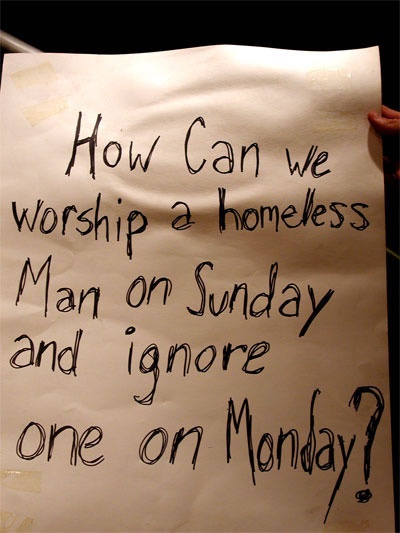 How Can we
worship a homeless
Man on Sunday
and ignore
one on Monday?